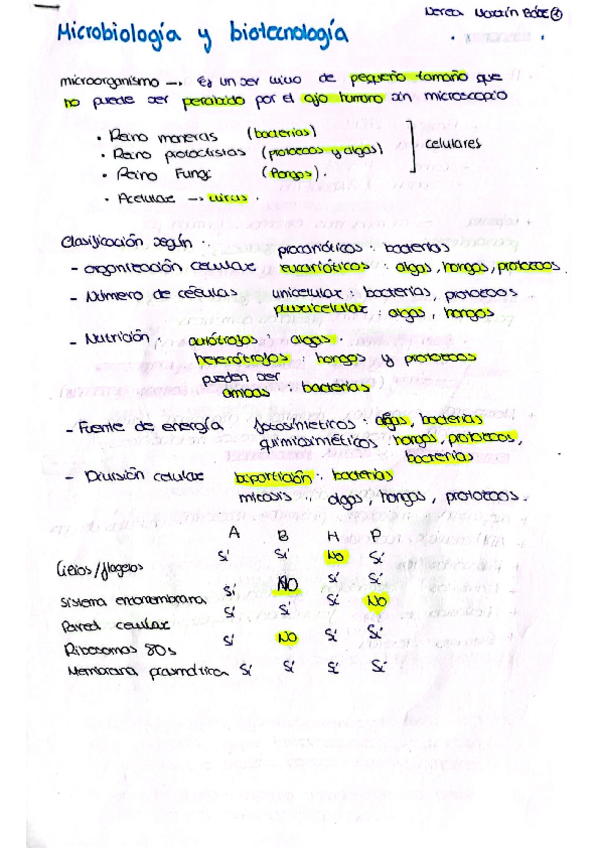 Nerea Martín
Microbiología y biotecnología
microorganismo → Es un ser vivo de pequeño tamaño que
no puede ser percibido por el ojo humano sin microscopio
• Reino moneras (bacterias)
• Reino protoctistas (protozoos y algas)
• Reino Fungi (hongos).
celulares
• Acelular → virus.
Clasificación según:
- organización celular procarióticos: bacterias
eucarióticos: algas, hongos, protozoos.
- Número de células unicelular: bacterias, protozoos
pluricelular: algas, hongos
- Nutrición: autótrofos: algas.
heterótrofos: hongos y protozoos
pueden ser
ambos: bacterias
- Fuente de energía fotosintéticos: algas, bacterias
quimiosintéticos hongos, protozoos,
bacterias
- División celular bipartición: bacterias
mitosis: algas, hongos, protozoos.
A B H P
Cilios/flagelos Sí Sí No Sí
Sistema endomembrana Sí NO Sí Sí
Pared celular Sí Sí Sí No
Ribosomas 80s Sí No Sí Sí
Membrana plasmática Sí Sí Sí Sí